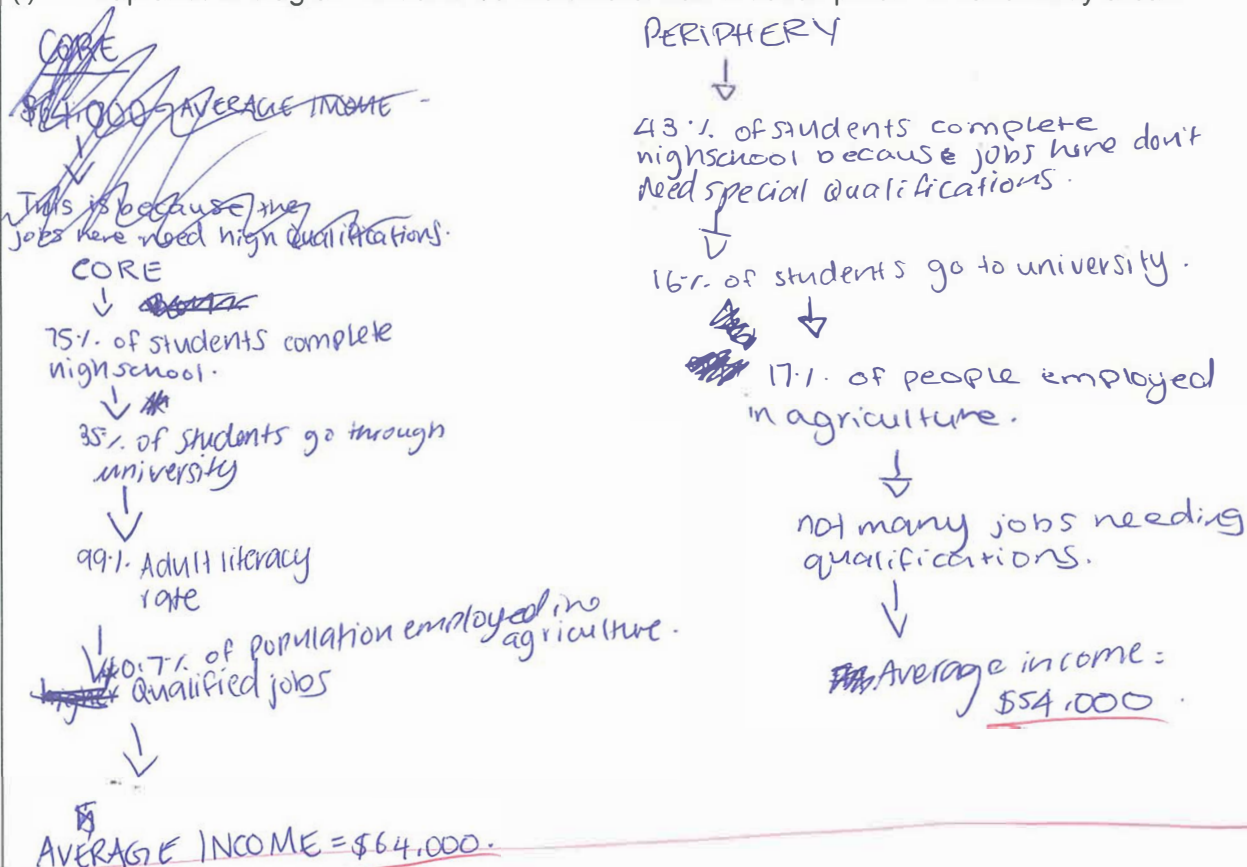 CORE
$64,000 - AVERAGE INCOME -
This is because the
jobs here need high qualifications.
CORE
75% of students complete
highschool.
35% of students go through
university
99% Adult literacy
rate
0.7% of population employed in
agriculture.
higher Qualified jobs
AVERAGE INCOME = $64,000.
PERIPHERY
43% of students complete
highschool because jobs here don't
need special qualifications.
16% of students go to university.
17% of people employed
in agriculture.
not many jobs needing
qualifications.
Average income =
$54,000